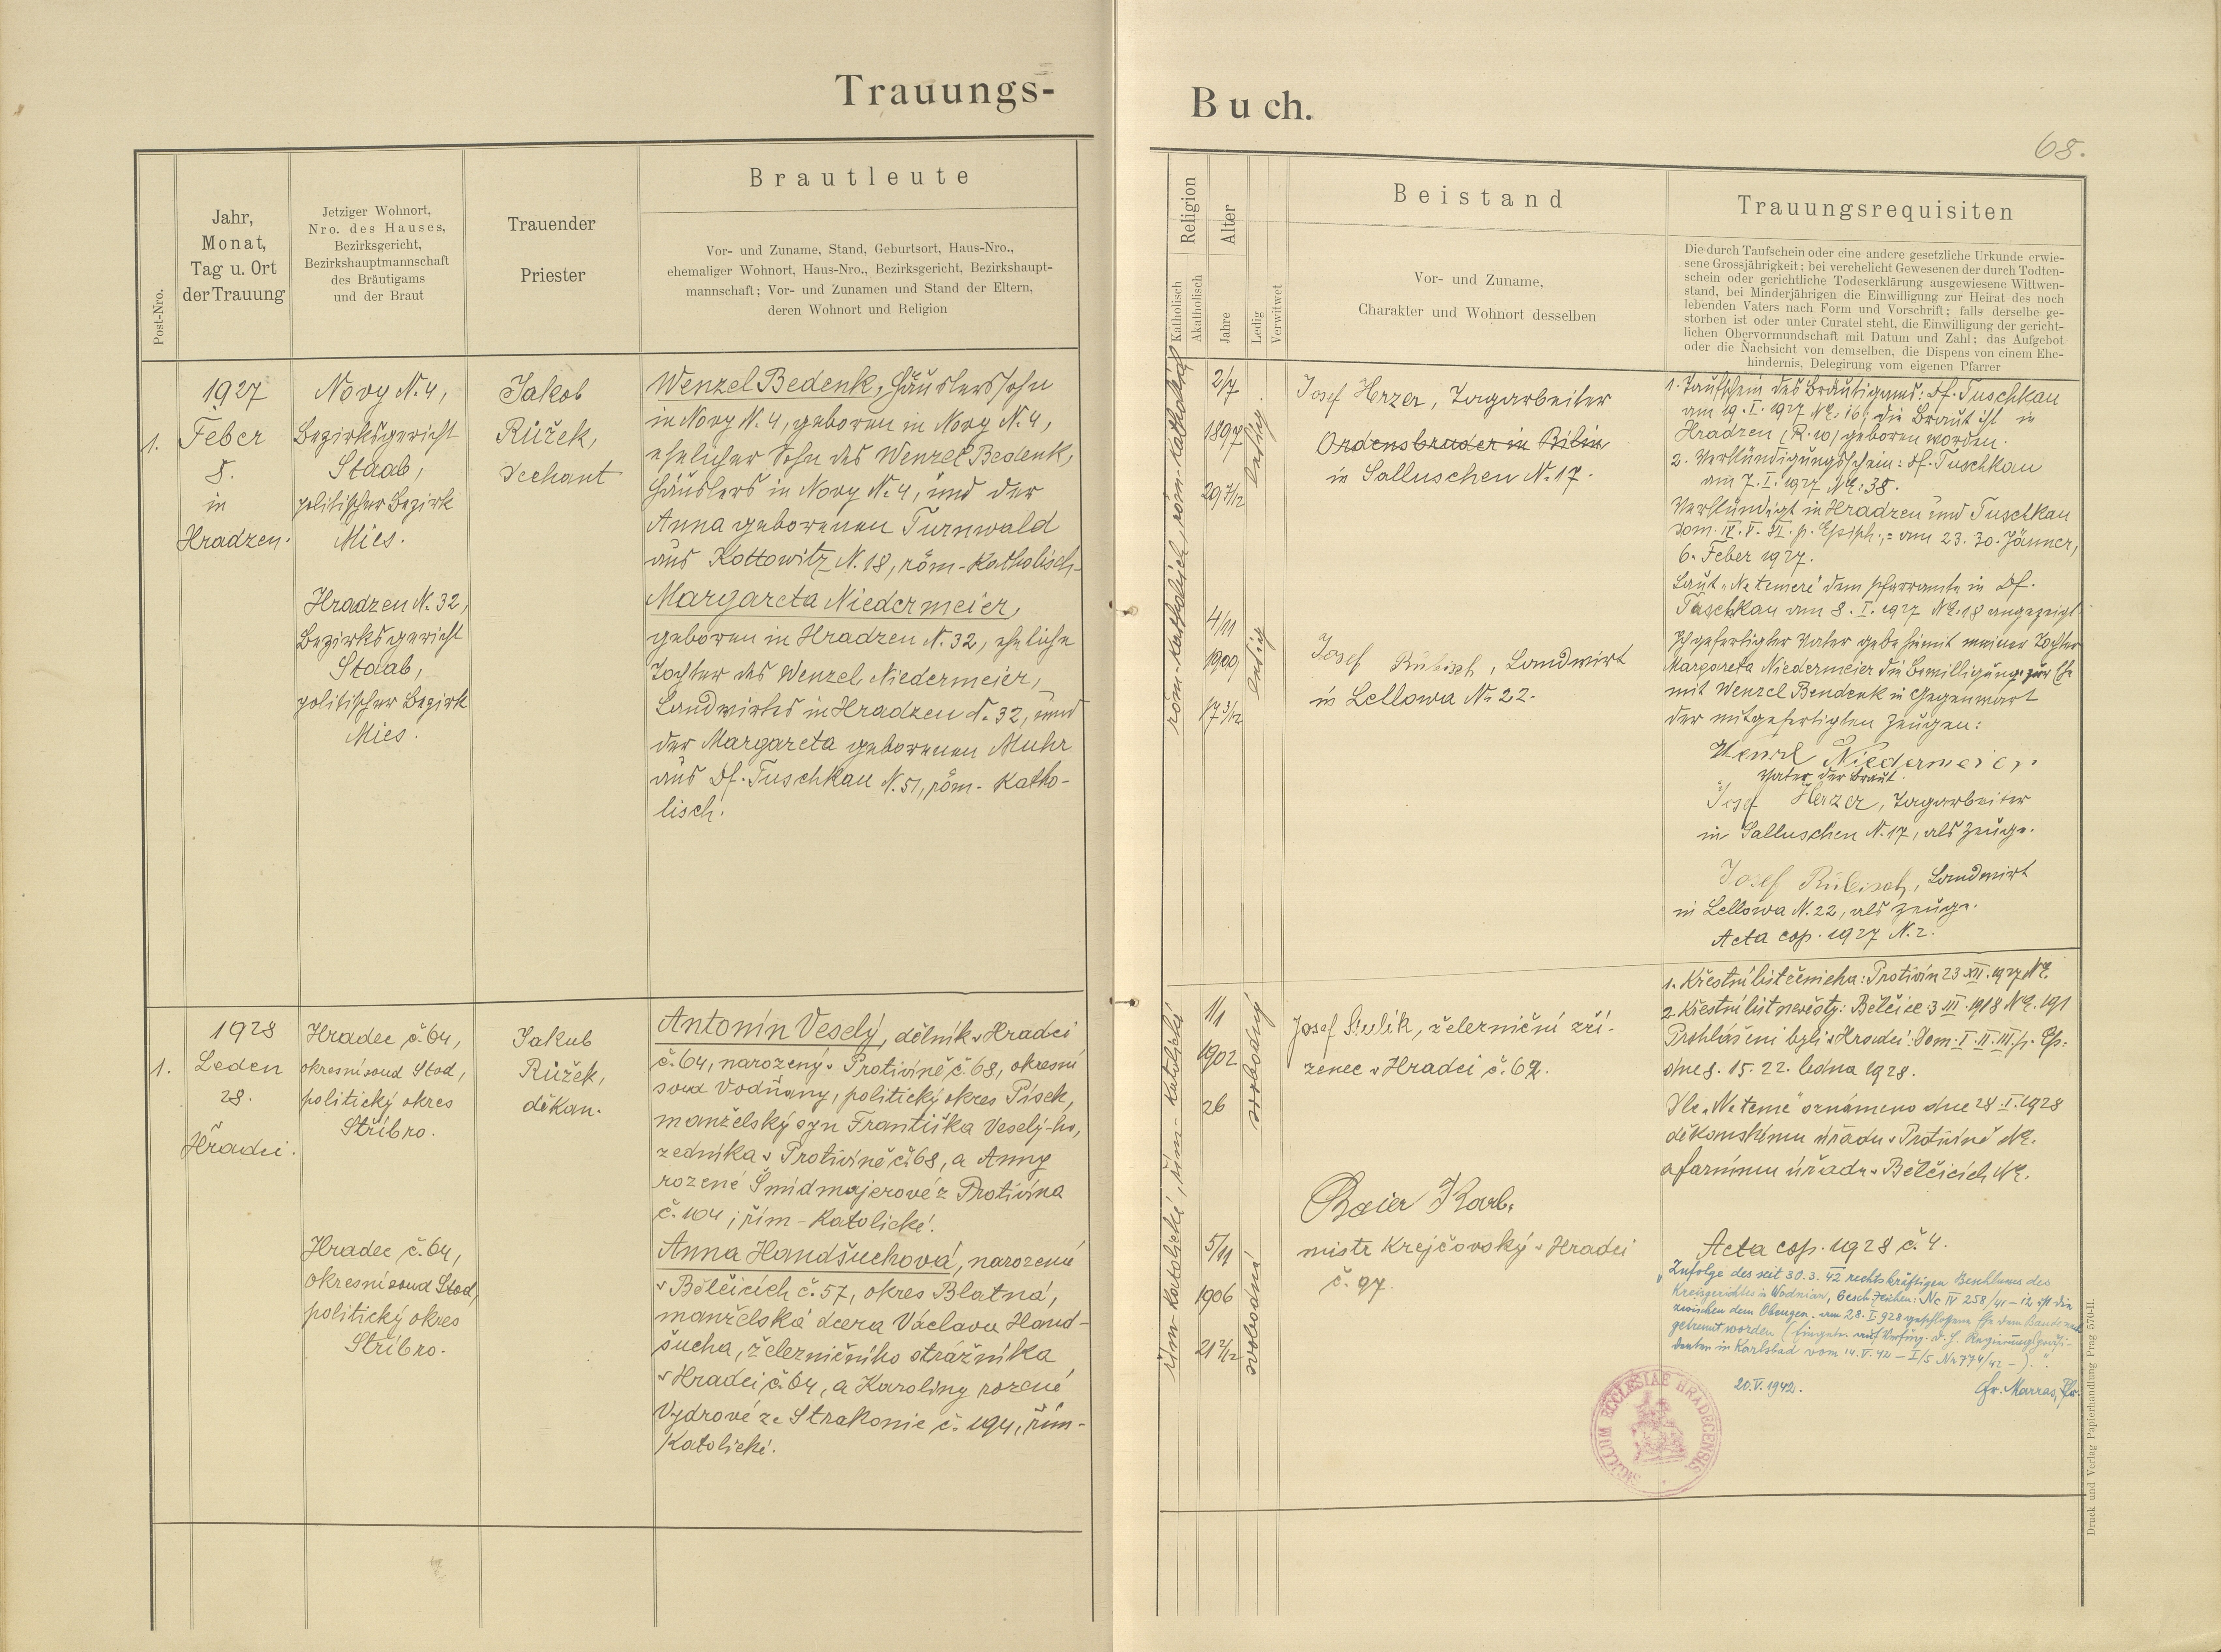 Trauungs-
Buch.
68.
Post-Nro.
Jahr,
Monat,
Tag u. Ort
der Trauung
Jetziger Wohnort,
Nro. des Hauses,
Bezirksgericht,
Bezirkshauptmannschaft
des Bräutigams
und der Braut
Trauender
Priester
Brautleute
Vor- und Zuname, Stand, Geburtsort, Haus-Nro.,
ehemaliger Wohnort, Haus-Nro., Bezirksgericht, Bezirkshaupt-
mannschaft; Vor- und Zunamen und Stand der Eltern,
deren Wohnort und Religion
Religion
Katholisch
Akatholisch
Alter
Jahre
Ledig
Verwitwet
Beistand
Vor- und Zuname,
Charakter und Wohnort desselben
Trauungsrequisiten
Die durch Taufschein oder eine andere gesetzliche Urkunde erwie-
sene Grossjährigkeit; bei verehelicht Gewesenen der durch Todten-
schein oder gerichtliche Todeserklärung ausgewiesene Wittwen-
stand, bei Minderjährigen die Einwilligung zur Heirat des noch
lebenden Vaters nach Form und Vorschrift; falls derselbe ge-
storben ist oder unter Curatel steht, die Einwilligung der gericht-
lichen Obervormundschaft mit Datum und Zahl; das Aufgebot
oder die Nachsicht von demselben, die Dispens von einem Ehe-
hindernis, Delegirung vom eigenen Pfarrer
1.
1927
Feber
8.
in
Hradzen.
Novy N. 4,
Bezirksgericht
Staab,
politischer Bezirk
Mies.
Hradzen N. 32,
Bezirksgericht
Staab,
politischer Bezirk
Mies.
Jakob
Růžek,
Dechant
Wenzel Bedenk, Häuslerssohn
in Novy N. 4, geboren in Novy N. 4,
ehelicher Sohn des Wenzel Bedenk,
Häuslers in Novy N. 4, und der
Anna geborenen Turnwald
aus Kottowitz N. 18, röm-Katholisch-
Margareta Niedermeier,
geboren in Hradzen N. 32, eheliche
Tochter des Wenzel Niedermeier,
Landwirtes in Hradzen N. 32, und
der Margareta geborenen Muhr
aus Df. Tuschkau N. 51, röm-Katho-
lisch.
röm-Katholisch, röm-Katholisch
2/7
1897
29 7/12
ledig
4/11
1909
17 3/12
ledig
Josef Herzer, Tagarbeiter
Ordensbruder in Bilin
in Salluschen N. 17.
Josef Rubisch, Landwirt
in Lellowa N. 22.
1. Taufschein des Bräutigams: Df. Tuschkau
am 19. I. 1927 NE. 16; die Braut ist in
Hradzen (R. 10) geboren worden.
2. Verkündigungsschein: Df. Tuschkau
am 7. I. 1927 NE: 38.
Verkündigt in Hradzen und Tuschkau
Dom. IV. V. VI. p. Epiph.,= am 23. 30. Jänner,
6. Feber 1927.
Laut „Ne temere" dem Pfarramte in Df.
Tuschkau am 8. I. 1927 NE. 18 angezeigt.
Ich gefertigter Vater gebe hiemit meiner Tochter
Margareta Niedermeier die Bewilligung zur Ehe
mit Wenzel Bendenk in Gegenwart
der mitgefertigten Zeugen:
Wenzl Niedermeier
Vater der Braut.
Josef Herzer, Tagarbeiter
in Salluschen N. 17, als Zeuge.
Josef Rubisch, Landwirt
in Lellowa N. 22, als Zeuge.
Acta cop. 1927 N. 2.
1.
1928
Leden
28.
Hradci.
Hradec č. 64,
okresní soud Stod,
politický okres
Stříbro.
Hradec č. 64,
okresní soud Stod,
politický okres
Stříbro.
Jakub
Růžek,
děkan.
Antonín Veselý, dělník v Hradci
č. 64, narozený v Protivíně č. 68, okresní
soud Vodňany, politický okres Písek,
manželský syn Františka Veselý-ho,
zedníka v Protivíně č. 68, a Anny
rozené Šmidmajerové z Protivína
č. 104; řím-Katolické.
Anna Handšuchová, narozená
v Bělčicích č. 57, okres Blatná,
manželská dcera Václava Hand-
šucha, železničního strážníka
v Hradci č. 64, a Karoliny rozené
Vydrové ze Strakonic č. 194, řím-
Katolické.
řím-Katolické, řím-Katolické
1/1
1902
26
svobodný
5/11
1906
21 2/12
svobodná
Josef Sivlík, železniční zří-
zenec v Hradci č. 62.
Baier Karl,
mistr Krejčovský v Hradci
č. 97.
1. Křestní list ženicha: Protivín 23 XII. 1927 NE.
2. Křestní list nevěsty: Bělčice 3 III. 1918 NE. 191
Prohlášeni byli v Hradci: Dom. I. II. III. p. Ep:
dne 8. 15. 22. ledna 1928.
Dle „Ne teme" oznámeno dne 28. I. 1928
děkanskému úřadu v Protivíně NE.
a farnímu úřadu v Bělčicích NE.
Acta cop. 1928 č. 4.
„Zufolge des seit 30. 3. 42 rechtskräftigen Beschlusses des
Kreisgerichtes in Wodnian, Gesch. Zeichen: Nc IV 258/41-12 ist die
zwischen dem Obengen. am 28. I 928 geschlossene Ehe dem Bande nach
getrennt worden (Eingetr. auf Verfüg. d. H. Regierungspräsi-
denten in Karlsbad vom 14. V. 42 - I/5 Nr 774/42 -)."
20. V. 1942.
Fr. Marras, Pfr.
SIGILLUM ECCLESIAE HRADECENSIS
Druck und Verlag Papierhandlung Prag 570-II.